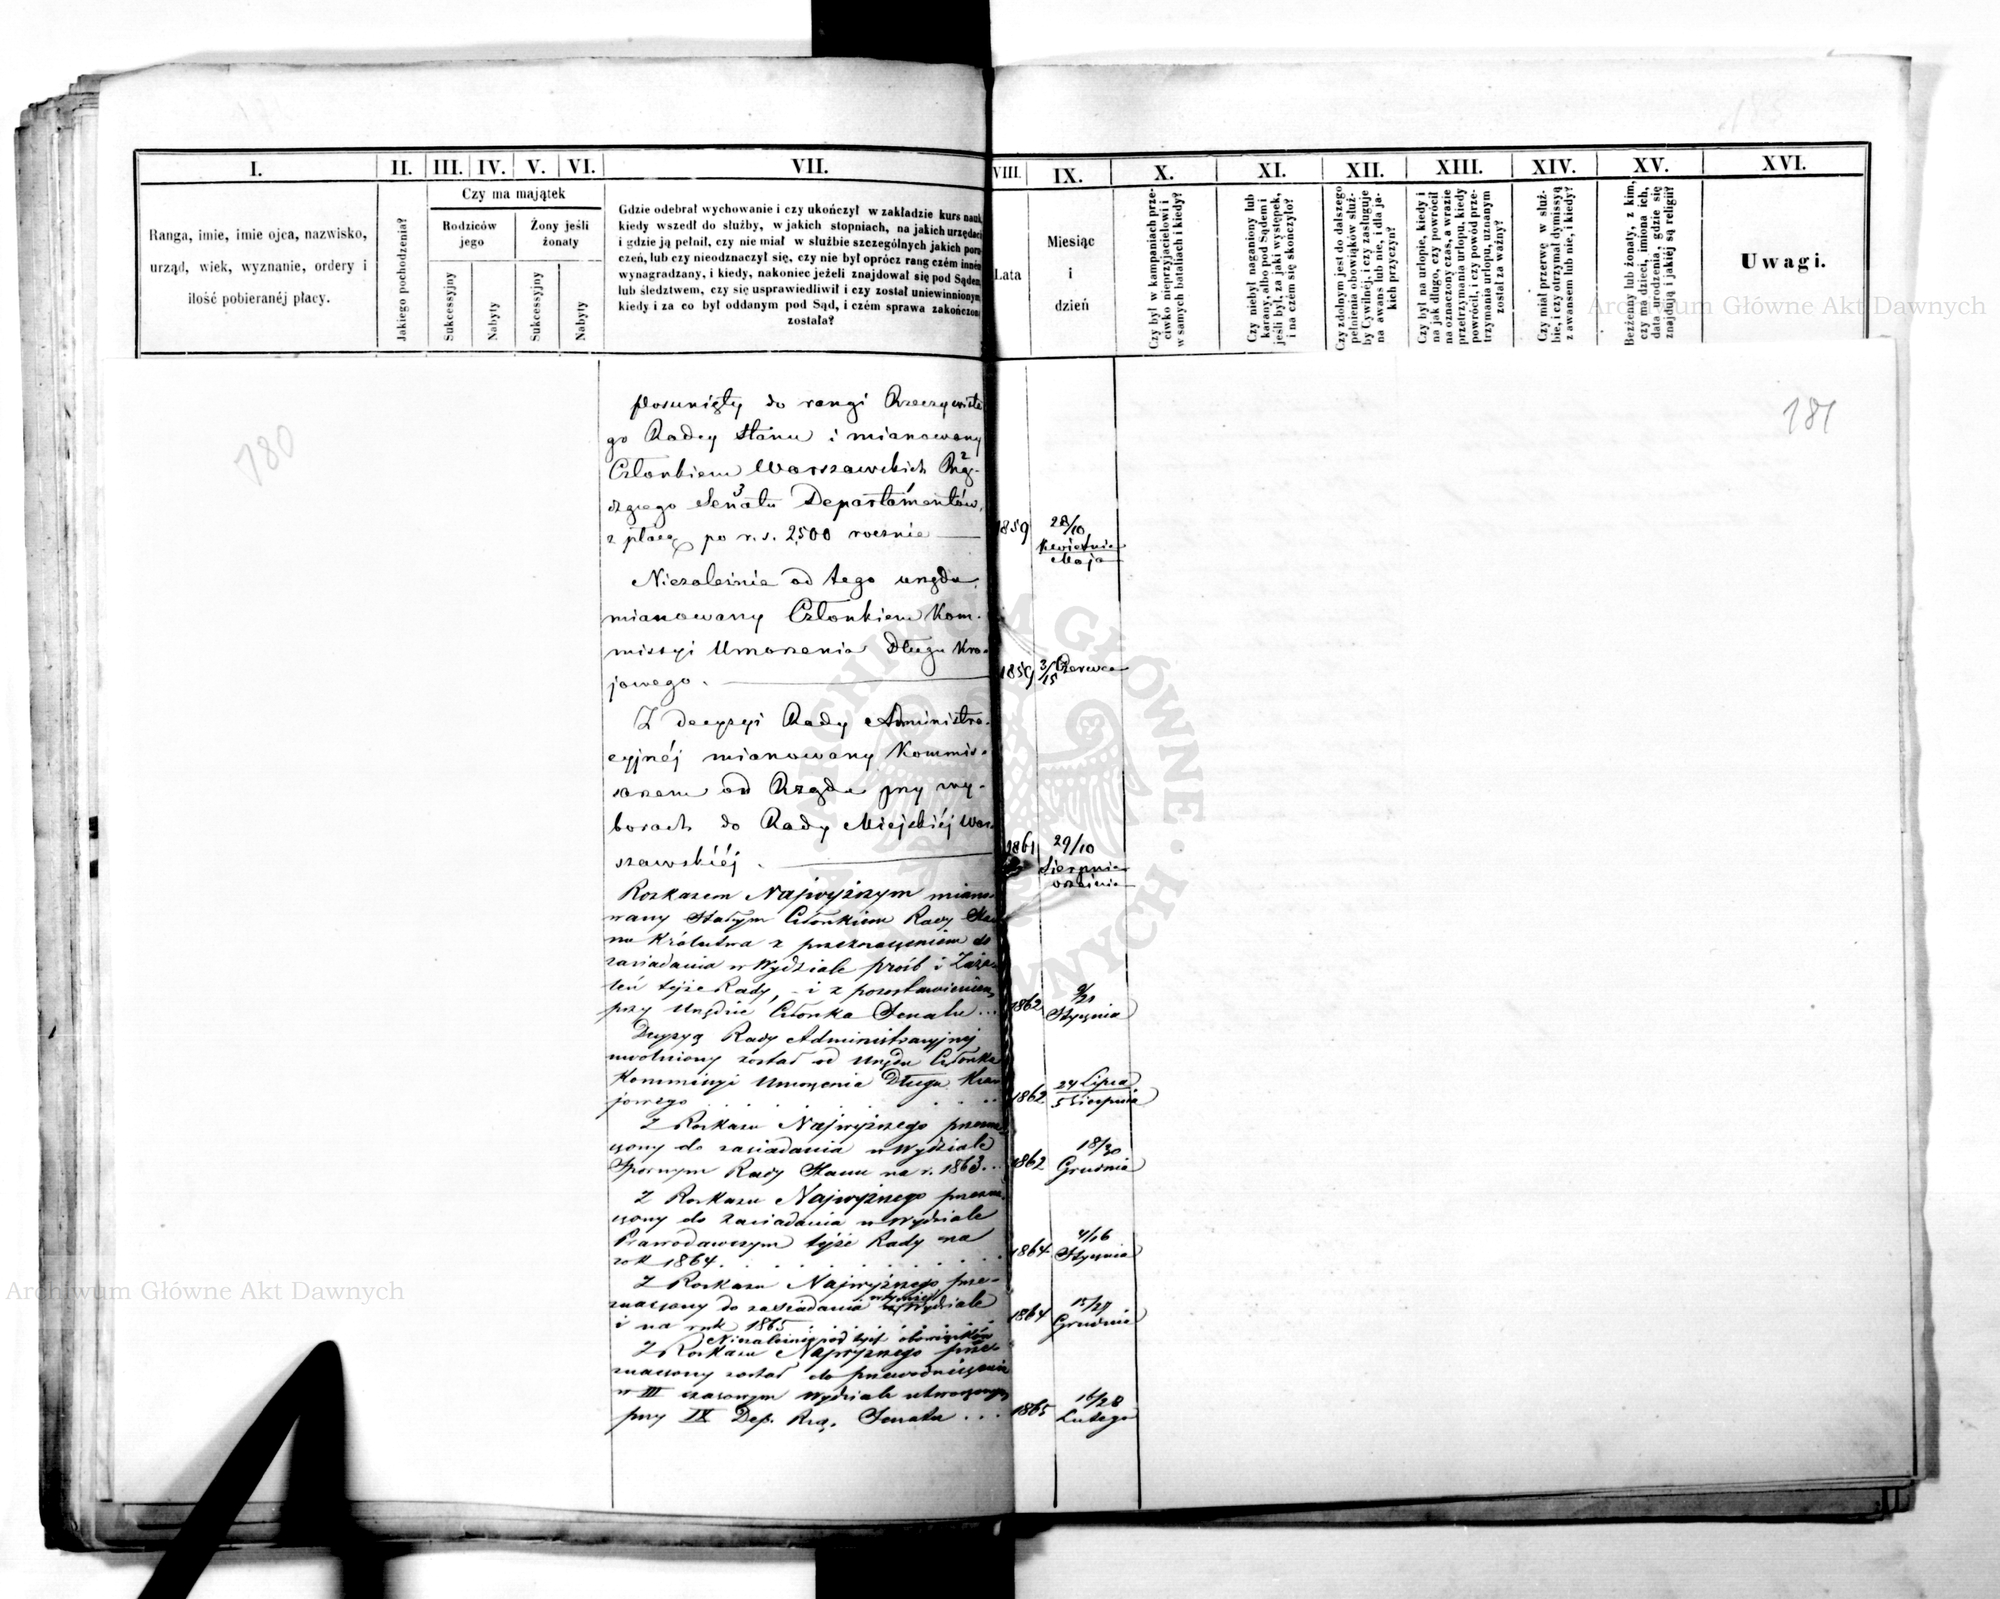 185
I.
II.
III.
IV.
V.
VI.
VII.
VIII.
IX.
X.
XI.
XII.
XIII.
XIV.
XV.
XVI.
Ranga, imie, imie ojca, nazwisko,
urząd, wiek, wyznanie, ordery i
ilość pobieranéj płacy.
Jakiego pochodzenia?
Czy ma majątek
Rodziców
jego
Żony jeśli
żonaty
Sukcessyjny
Nabyty
Sukcessyjny
Nabyty
Gdzie odebrał wychowanie i czy ukończył w zakładzie kurs nauk,
kiedy wszedł do służby, w jakich stopniach, na jakich urzędaci
i gdzie ją pełnił, czy nie miał w służbie szczególnych jakich poru
czeń, lub czy nieodznaczył się, czy nie był oprócz rang czém inném
wynagradzany, i kiedy, nakoniec jeżeli znajdował się pod Sądem
lub śledztwem, czy się usprawiedliwił i czy został uniewinnionym
kiedy i za co był oddanym pod Sąd, i czém sprawa zakończoni
została?
Lata
Miesiąc
i
dzień
Czy był w kampaniach prze-
ciwko nieprzyjacielowi i
w samych bataliach i kiedy?
Czy niebył naganiony lub
karany, albo pod Sądem i
jeśli był, za jaki występek,
i na czém się skończyło?
Czy zdolnym jest do dalszego
pełnienia obowiąków służ-
by Cywilnéj, i czy zasługuje
na awans lub nie, i dla ja-
kich przyczyn?
Czy był na urlopie, kiedy i
na jak długo, czy powrócił
na oznaczony czas, a wrazie
przetrzymania urlopu, kiedy
powrócił, i czy powód prze-
trzymania urlopu, uznanym
został za ważny?
Czy miał przerwę w służ-
bie, i czy otrzymał dymissyą
z awansem lub nie, i kiedy?
Bezżenny lub żonaty, z kim,
czy ma dzieci, imiona ich,
data urodzenia, gdzie się
znajdują i jakiéj są religii?
Uwagi.
Archiwum Główne Akt Dawnych
180
181
posunięty do rangi Rzeczywiste
go Radcy Stanu i mianowany
Członkiem Warszawskich Rzą-
dzącego Senatu Departamentów,
z płacą po r. s. 2500 rocznie
1859 28/10
Kwietnia
Maja
Niezależnie od tego urzędu
mianowany Członkiem Kom-
missyi Umorzenia Długu Kra-
jowego.
1859 3/15 Czerwca
Z decyzyi Rady Administra-
cyjnéj mianowany Kommis-
sarzem od Rządu przy wy-
borach do Rady Miejskiéj War-
szawskiéj.
1861 29/10
Sierpnia
Września
Rozkazem Najwyższym miano-
wany Stałym Członkiem Rady Sta
nu Królestwa z przeznaczeniem do
zasiadania w Wydziale próśb i Zaża-
leń tejże Rady, - i z pozostawieniem
przy Urzędzie Członka Senatu...
1862 9/21
Stycznia
Decyzyą Rady Administracyjnej
uwolniony został od Urzędu Członka
Kommissyi Umorzenia Długu Kra
jowego
1862 24 Lipca
5 Sierpnia
Z Rozkazu Najwyższego przezna
czony do zasiadania w Wydziale
Spornym Rady Stanu na r. 1863...
1862 18/30
Grudnia
Z Rozkazu Najwyższego przezna
czony do zasiadania w Wydziale
Prawodawczym tejże Rady na
rok 1864.
1864 4/16
Stycznia
Z Rozkazu Najwyższego prze-
znaczony do zasiadania w tymże Wydziale
i na rok 1865
1864 15/27
Grudnia
Niezależnie od tych obowiązków
Z Rozkazu Najwyższego prze-
znaczony został do przewodniczenia
w III czasowym Wydziale utworzonym
przy IX Dep. Rzą. Senatu...
1865 16/28
Lutego
ARCHIWUM GŁÓWNE AKT DAWNYCH
Archiwum Główne Akt Dawnych